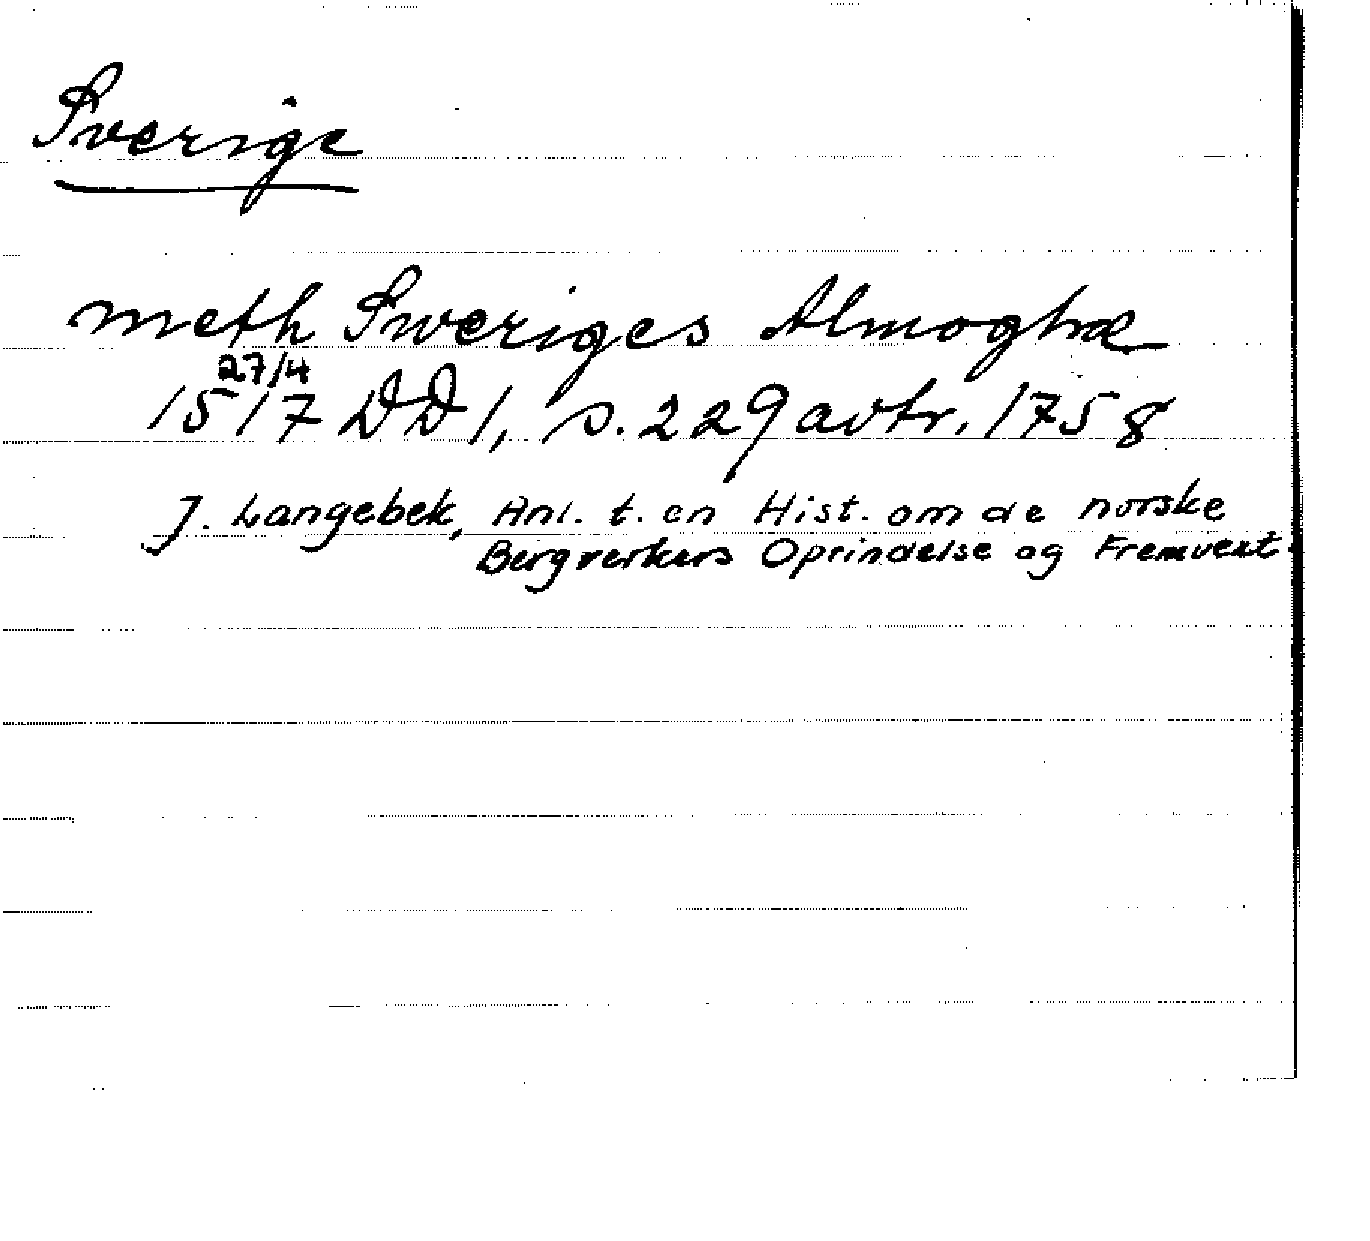 Sverige
meth Sweriges Almoghæ
27/4
1517 DD1, s. 229 avtr. 1758
J. Langebek, Anl. t. en Hist. om de norske
Bergverkers Oprindelse og Fremvext.